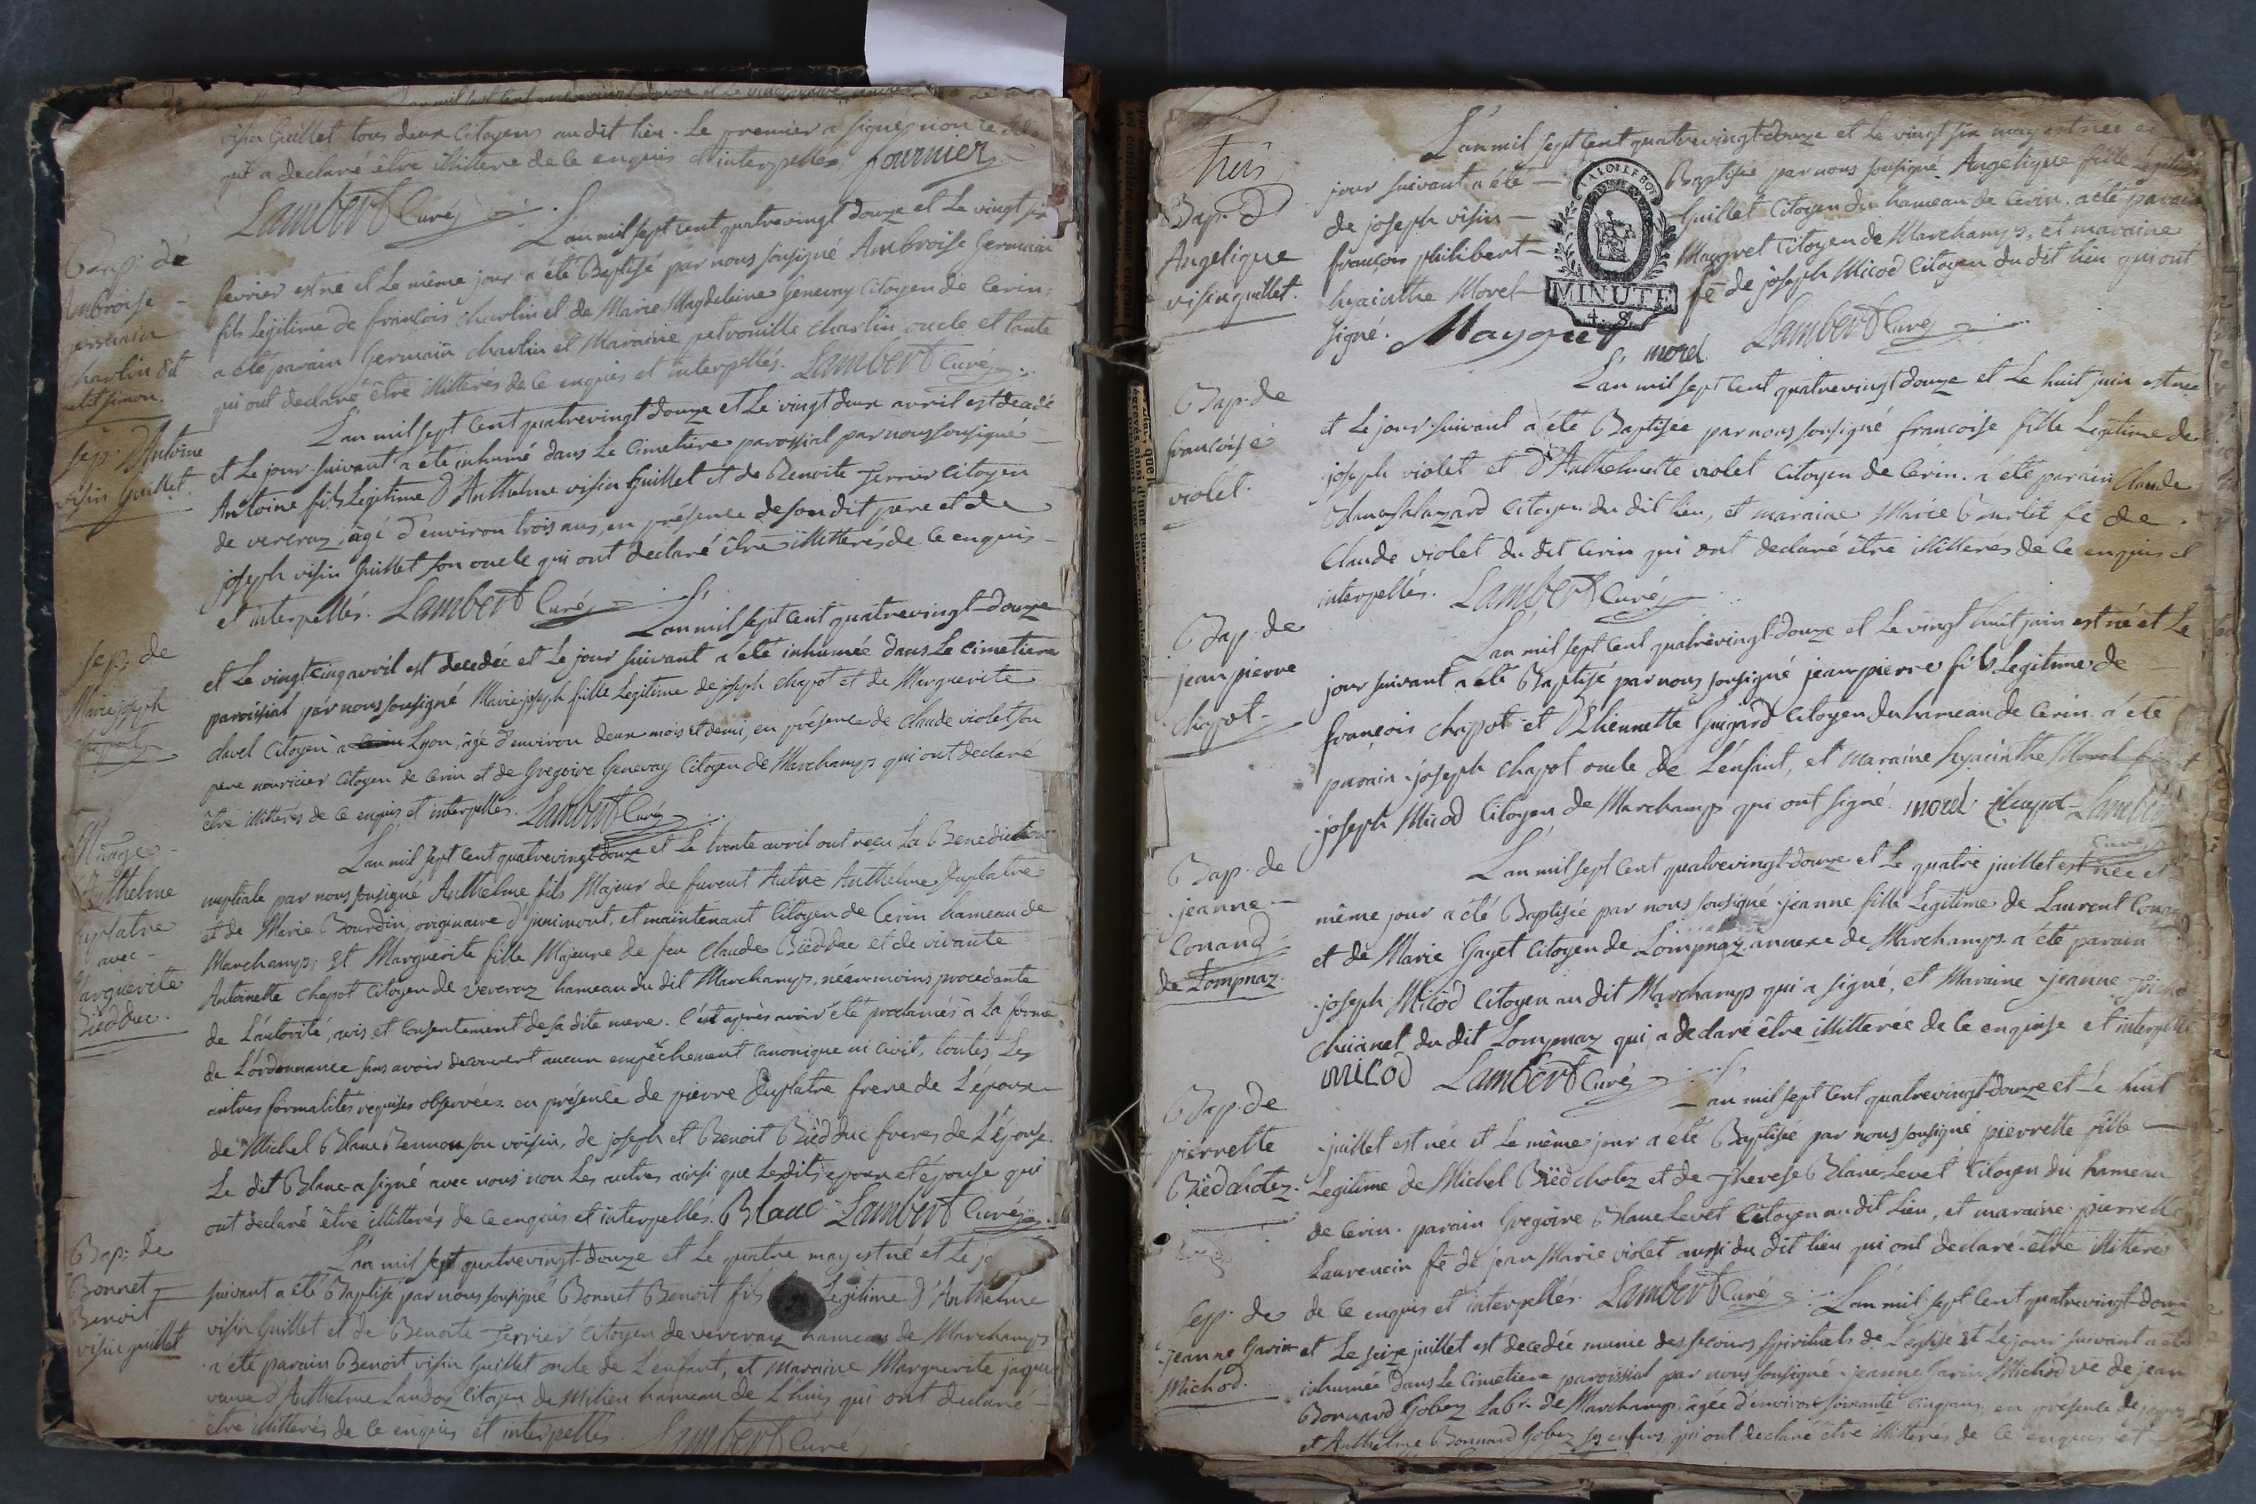 visin Guillet tous deux Citoyens audit lieu. Le premier a signé, non le
qui a declaré être illitteré de ce enquis et interpellés. fournier
Lambert Curé
L'an mil sept cent quatrevingt douze et Le vingt six
Bap. de
Ambroise
germain
charlin dit
petit simon.
fevrier est né et Le même jour a été Baptisé par nous sousigné Ambroise Germain
fils Legitime de françois charlin et de Marie Magdelaine Genevay Citoyen de Cerin;
a été parain Germain charlin et Maraine petronille charlin oncle et tante
qui ont declaré être illitterés de ce enquis et interpellés. Lambert Curé
Sep. d'Antoine
visin Guillet.
L'an mil sept cent quatrevingt douze et Le vingt deux avril est decedé
et Le jour suivant a été inhumé dans Le cimetiere paroissial par nous sousigné
Antoine fils Legitime d'Anthelme visin Guillet et de Benoite Ferrier Citoyen
de vercraz, âgé d'environ trois ans, en présence de son dit pere et de
joseph visin Guillet son oncle qui ont declaré être illitterés de ce enquis
et interpellés. Lambert Curé
Sep. de
Marie joseph
chapot
L'an mil sept cent quatrevingt-douze
et Le vingt cinq avril est decedée et Le jour suivant a été inhumée dans Le cimetiere
paroissial par nous sousigné Marie joseph fille Legitime de joseph chapot et de Marguerite
clavel Citoyen a Lyon, âgé d'environ deux mois et demi, en présence de claude violet son
pere nouricier Citoyen de Cerin et de Gregoire Genevay Citoyen de Marchamps qui ont declaré
être illitterés de ce enquis et interpellés. Lambert Curé
Mariage
d'Anthelme
Duplatre
avec
Marguerite
Biédduc.
L'an mil sept cent quatrevingt douze et Le trente avril ont recu La Benediction
nuptiale par nous sousigné Anthelme fils Majeur de furent Autre Anthelme Duplatre
et de Marie Bourdin, originaire d' et maintenant Citoyen de Cerin hameau de
Marchamps; Et Marguerite fille Majeure de feu claude Biédduc et de vivante
Antoinette chapot Citoyen de vercraz hameau du dit Marchamps, néanmoins procedante
de L'autorité, avis et consentement de sa dite mere. C'est après avoir été proclamés à La forme
de L'ordonnance sans avoir decouvert aucun empêchement canonique ni civil, toutes Les
autres formalités requises observées en présence de pierre Duplatre frere de L'époux
de Michel Blanc Bennon son voisin, de joseph et Benoit Biédduc freres de L'épouse.
Le dit Blanc a signé avec nous non Les autres ainsi que Lesdits epoux et épouse qui
ont declaré être illitterés de ce enquis et interpellés. Blanc Lambert Curé
Bap. de
Bonnet
Benoit
visin guillet
L'an mil sept quatrevingt-douze et Le quatre may est né et Le
suivant a été Baptisé par nous sousigné Bonnet Benoit fils Legitime d'Anthelme
visin Guillet et de Benoite Ferrier Citoyen de vercraz hameau de Marchamps
a été parain Benoit visin Guillet oncle de L'enfant, et maraine Marguerite
veuve d'Anthelme Landoz Citoyen de Milieu hameau de Lhuis qui ont declaré
être illitterés de ce enquis et interpellés. Lambert Curé
trois
Bap. d'
Angelique
visin guillet.
L'an mil sept cent quatrevingt-douze et Le vingt six may est née et
jour suivant a été Baptisée par nous sousigné Angelique fille Legitime
de joseph visin Guillet Citoyen du hameau de Cerin. a été parain
françois philibert Maygret Citoyen de Marchamps, et maraine
hyacinthe Morel fe de joseph Micod Citoyen du dit lieu qui ont
signé. Maygret morel Lambert Curé
LA LOI LE ROI
MINUTE
4. S.
Bap. de
francoise
violet.
L'an mil sept cent quatrevingt douze et Le huit juin est née
et Le jour suivant a été Baptisée par nous sousigné francoise fille Legitime de
joseph violet et d'Anthelmette violet Citoyen de Cerin. a été parain Claude
Citoyen du dit lieu, et maraine Marie Burlet fe de
Claude violet du dit Cerin qui ont declaré être illitterés de ce enquis et
interpellés. Lambert Curé
Bap. de
jean pierre
chapot
L'an mil sept cent quatrevingt-douze et Le vingt huit juin est né et Le
jour suivant a été Baptisé par nous sousigné jean pierre fils Legitime de
françois chapot et d'Ethiennette Guigard Citoyen du hameau de Cerin. a été
parain joseph chapot oncle de L'enfant, et maraine hyacinthe Morel
joseph Micod Citoyen de Marchamps qui ont signé. morel chapot Lambert
Curé
Bap. de
jeanne
Conand
de Lompnaz.
L'an mil sept cent quatrevingt-douze et Le quatre juillet est née et
même jour a été Baptisée par nous sousigné jeanne fille Legitime de Laurent Conand
et de Marie Gayet Citoyen de Lompnaz annexe de Marchamps. a été parain
joseph Micod Citoyen au dit Marchamps qui a signé, et Maraine jeanne
du dit Lompnaz qui a declaré être illitterée de ce enquise et interpellée
micod Lambert Curé
Bap. de
pierrette
Biédcholez.
L'an mil sept cent quatrevingt-douze et Le huit
juillet est née et Le même jour a été Baptisée par nous sousigné pierrette fille
Legitime de Michel Biédcholez et de Therese Blanc Levet Citoyen du hameau
de Cerin. parain Gregoire Blanc Levet Citoyen au dit Lieu, et maraine pierrette
Laurencin fe de jean Marie violet aussi du dit lieu qui ont declaré être illitterés
de ce enquis et interpellés. Lambert Curé
Sep. de
jeanne Garin
Michod.
L'an mil sept cent quatrevingt-douze
et Le seize juillet est decedée munie des secours spirituels de L'église et Le jour suivant a été
inhumée dans Le cimetiere paroissial par nous sousigné jeanne Garin Michod ve de jean
Bonnard Gobez Labr. de Marchamps, âgée d'environ soixante cinq ans, en présence de
et Anthelme Bonnard Gobez ses enfans, qui ont declaré être illitterés de ce enquis et